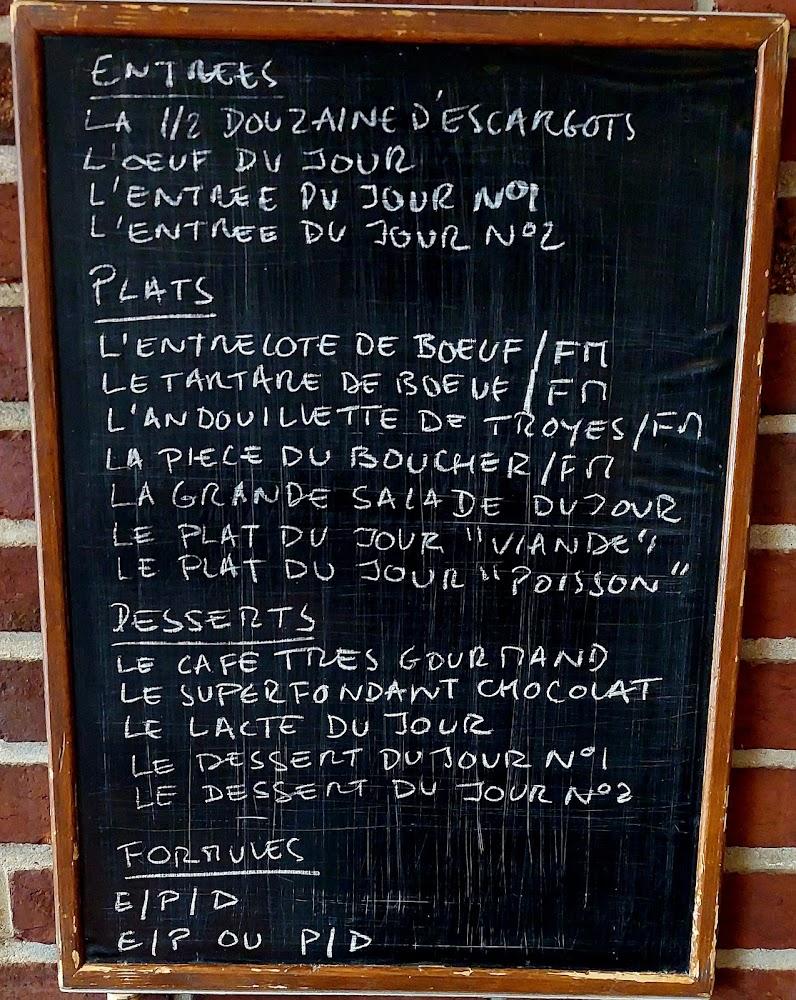 ENTREES
LA 1/2 DOUZAINE D'ESCARGOTS
L'OEUF DU JOUR
L'ENTREE DU JOUR N°1
L'ENTREE DU JOUR N°2
PLATS
L'ENTRECOTE DE BOEUF/FM
LE TARTARE DE BOEUF/FM
L'ANDOUILLETTE DE TROYES/FM
LA PIECE DU BOUCHER/FM
LA GRANDE SALADE DU JOUR
LE PLAT DU JOUR "VIANDE"
LE PLAT DU JOUR "POISSON"
DESSERTS
LE CAFE TRES GOURMAND
LE SUPERFONDANT CHOCOLAT
LE LACTE DU JOUR
LE DESSERT DU JOUR N°1
LE DESSERT DU JOUR N°2
FORMULES
E/P/D
E/P OU P/D